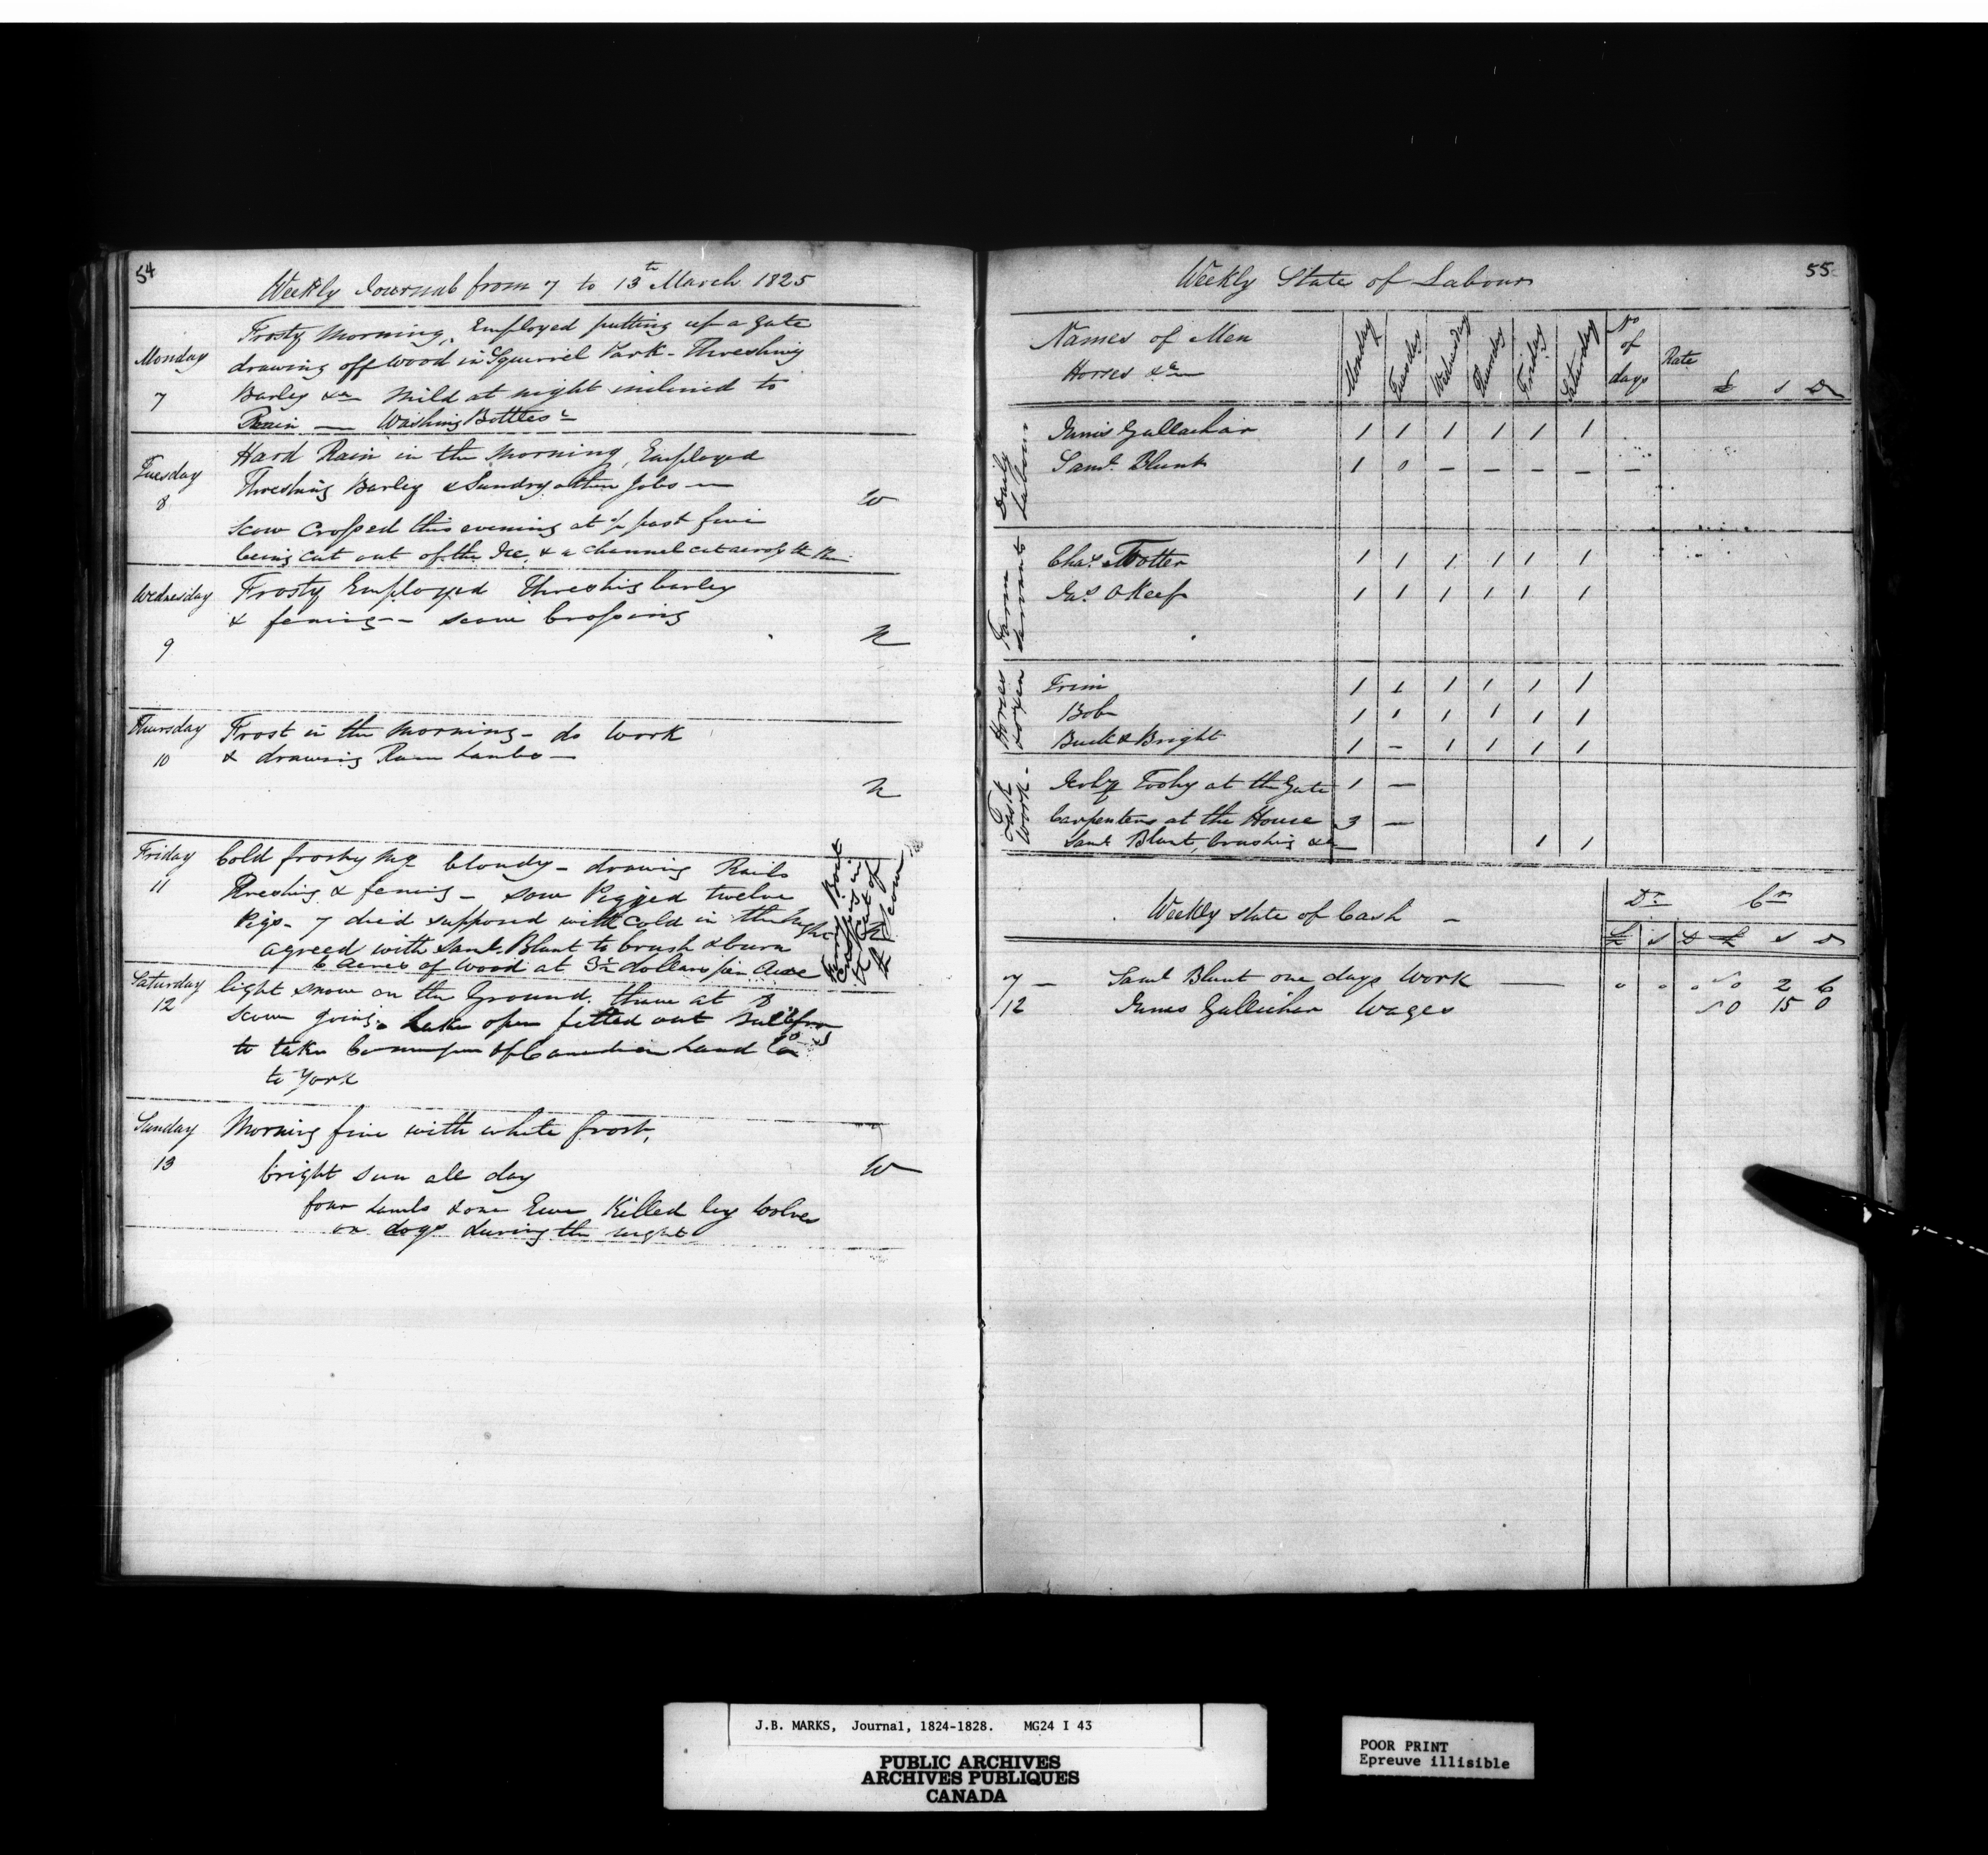 54
Weekly Journal from 7 to 13th March 1825
Monday
7
Frosty Morning, Employed putting up a gate
drawing off wood in Squirrel Park - Threshing
Barley &c mild at night inclined to
Rain — Washing Bottles
Tuesday
8
Hard Rain in the Morning, Employed
Threshing Barley & Sundry other Jobs —
W
Scow Crossed this evening at ½ past five
being cut out of the Ice, & a channel cut across the
Wednesday
9
Frosty Employed Threshing barley
& fencing - - scow Crossing
N
Thursday
10
Frost in the morning - do work
& drawing
N
Friday
11
Cold frosty Mg cloudy - drawing Rails
Threshing & fencing - sow Pigged twelve
Pigs - 7 died supposed with Cold in the night
agreed with Saml. Blunt to brush & burn
6 acres of wood at 3½ dollars per Acre
Ferry Boat
Crossing in
the
Scow
Saturday
12
light snow on the Ground. therm at 8
Scow going. Lake open fitted out
to take of Canadian Land Co
to York
Sunday
13
Morning fine with white frost,
bright sun all day
W
four Lambs & one Ewe Killed by Wolves
or dogs during the night
55
Weekly State of Labour
Names of Men
Horses &c
Monday Tuesday Wednesday Thursday Friday Saturday No of days Rate £ S D
Daily Labour
Gallachar 1 1 1 1 1 1
Saml. Blunt 1 0 — — — — —
Farm Servants
Chas. Trotter 1 1 1 1 1 1
Jas. OKeef 1 1 1 1 1 1
Horses & Oxen
Trim 1 1 1 1 1 1
Bob 1 1 1 1 1 1
Buck & Bright 1 — 1 1 1 1
Task Work
at the Gate 1 —
Carpenters at the House 3 —
Saml Blunt, brushing &c 1 1
Weekly state of Cash —
Dr Cr
£ S D £ S D
7 — Saml Blunt one days Work — 2 6
12 Gallichar Wages 0 15 0
J.B. MARKS, Journal, 1824-1828. MG24 I 43
PUBLIC ARCHIVES
ARCHIVES PUBLIQUES
CANADA
POOR PRINT
Epreuve illisible